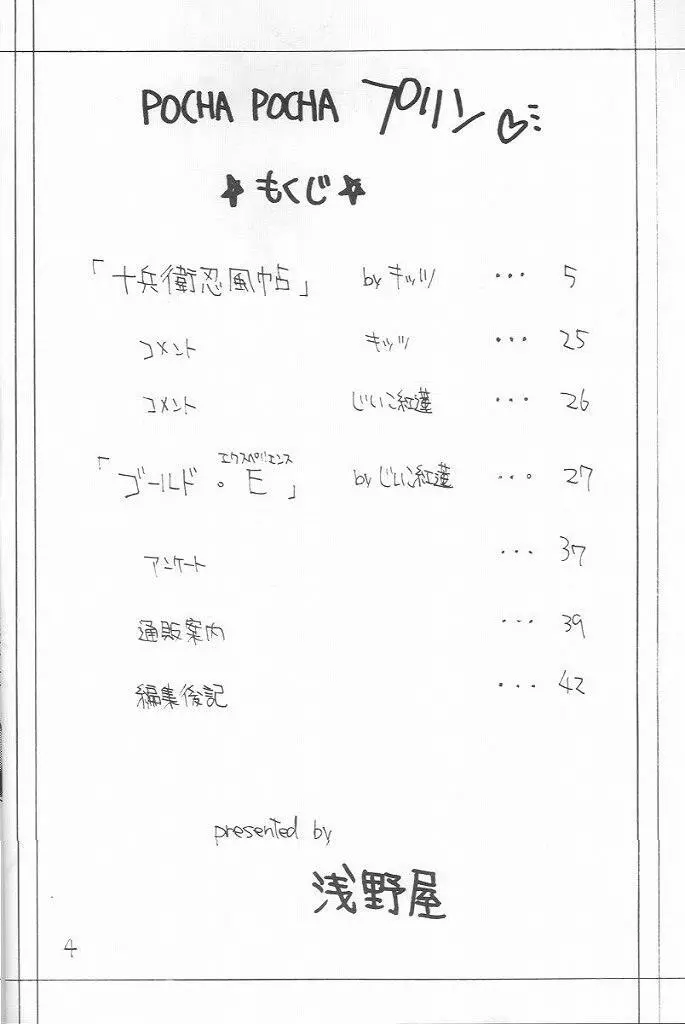 POCHA POCHA プリン♡
★もくじ★
「十兵衛忍風帖」 by キッツ ・・・ 5
コメント キッツ ・・・ 25
コメント じいこ紅蓮 ・・・ 26
エクスペリエンス
「ゴールド・E」 by じいこ紅蓮 ・・・ 27
アンケート ・・・ 37
通販案内 ・・・ 39
編集後記 ・・・ 42
presented by
浅野屋
4